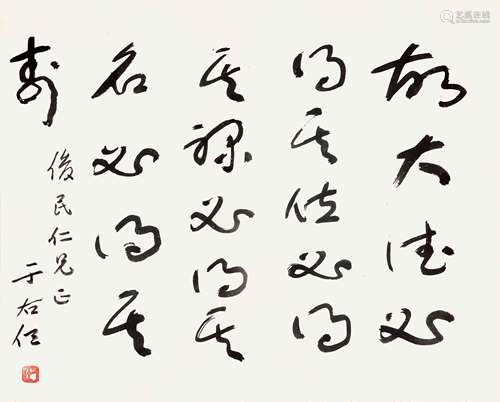 故大德必
得其位必得
其祿必得其
名必得其
壽
俊民仁兄正
于右任
艺狐在线